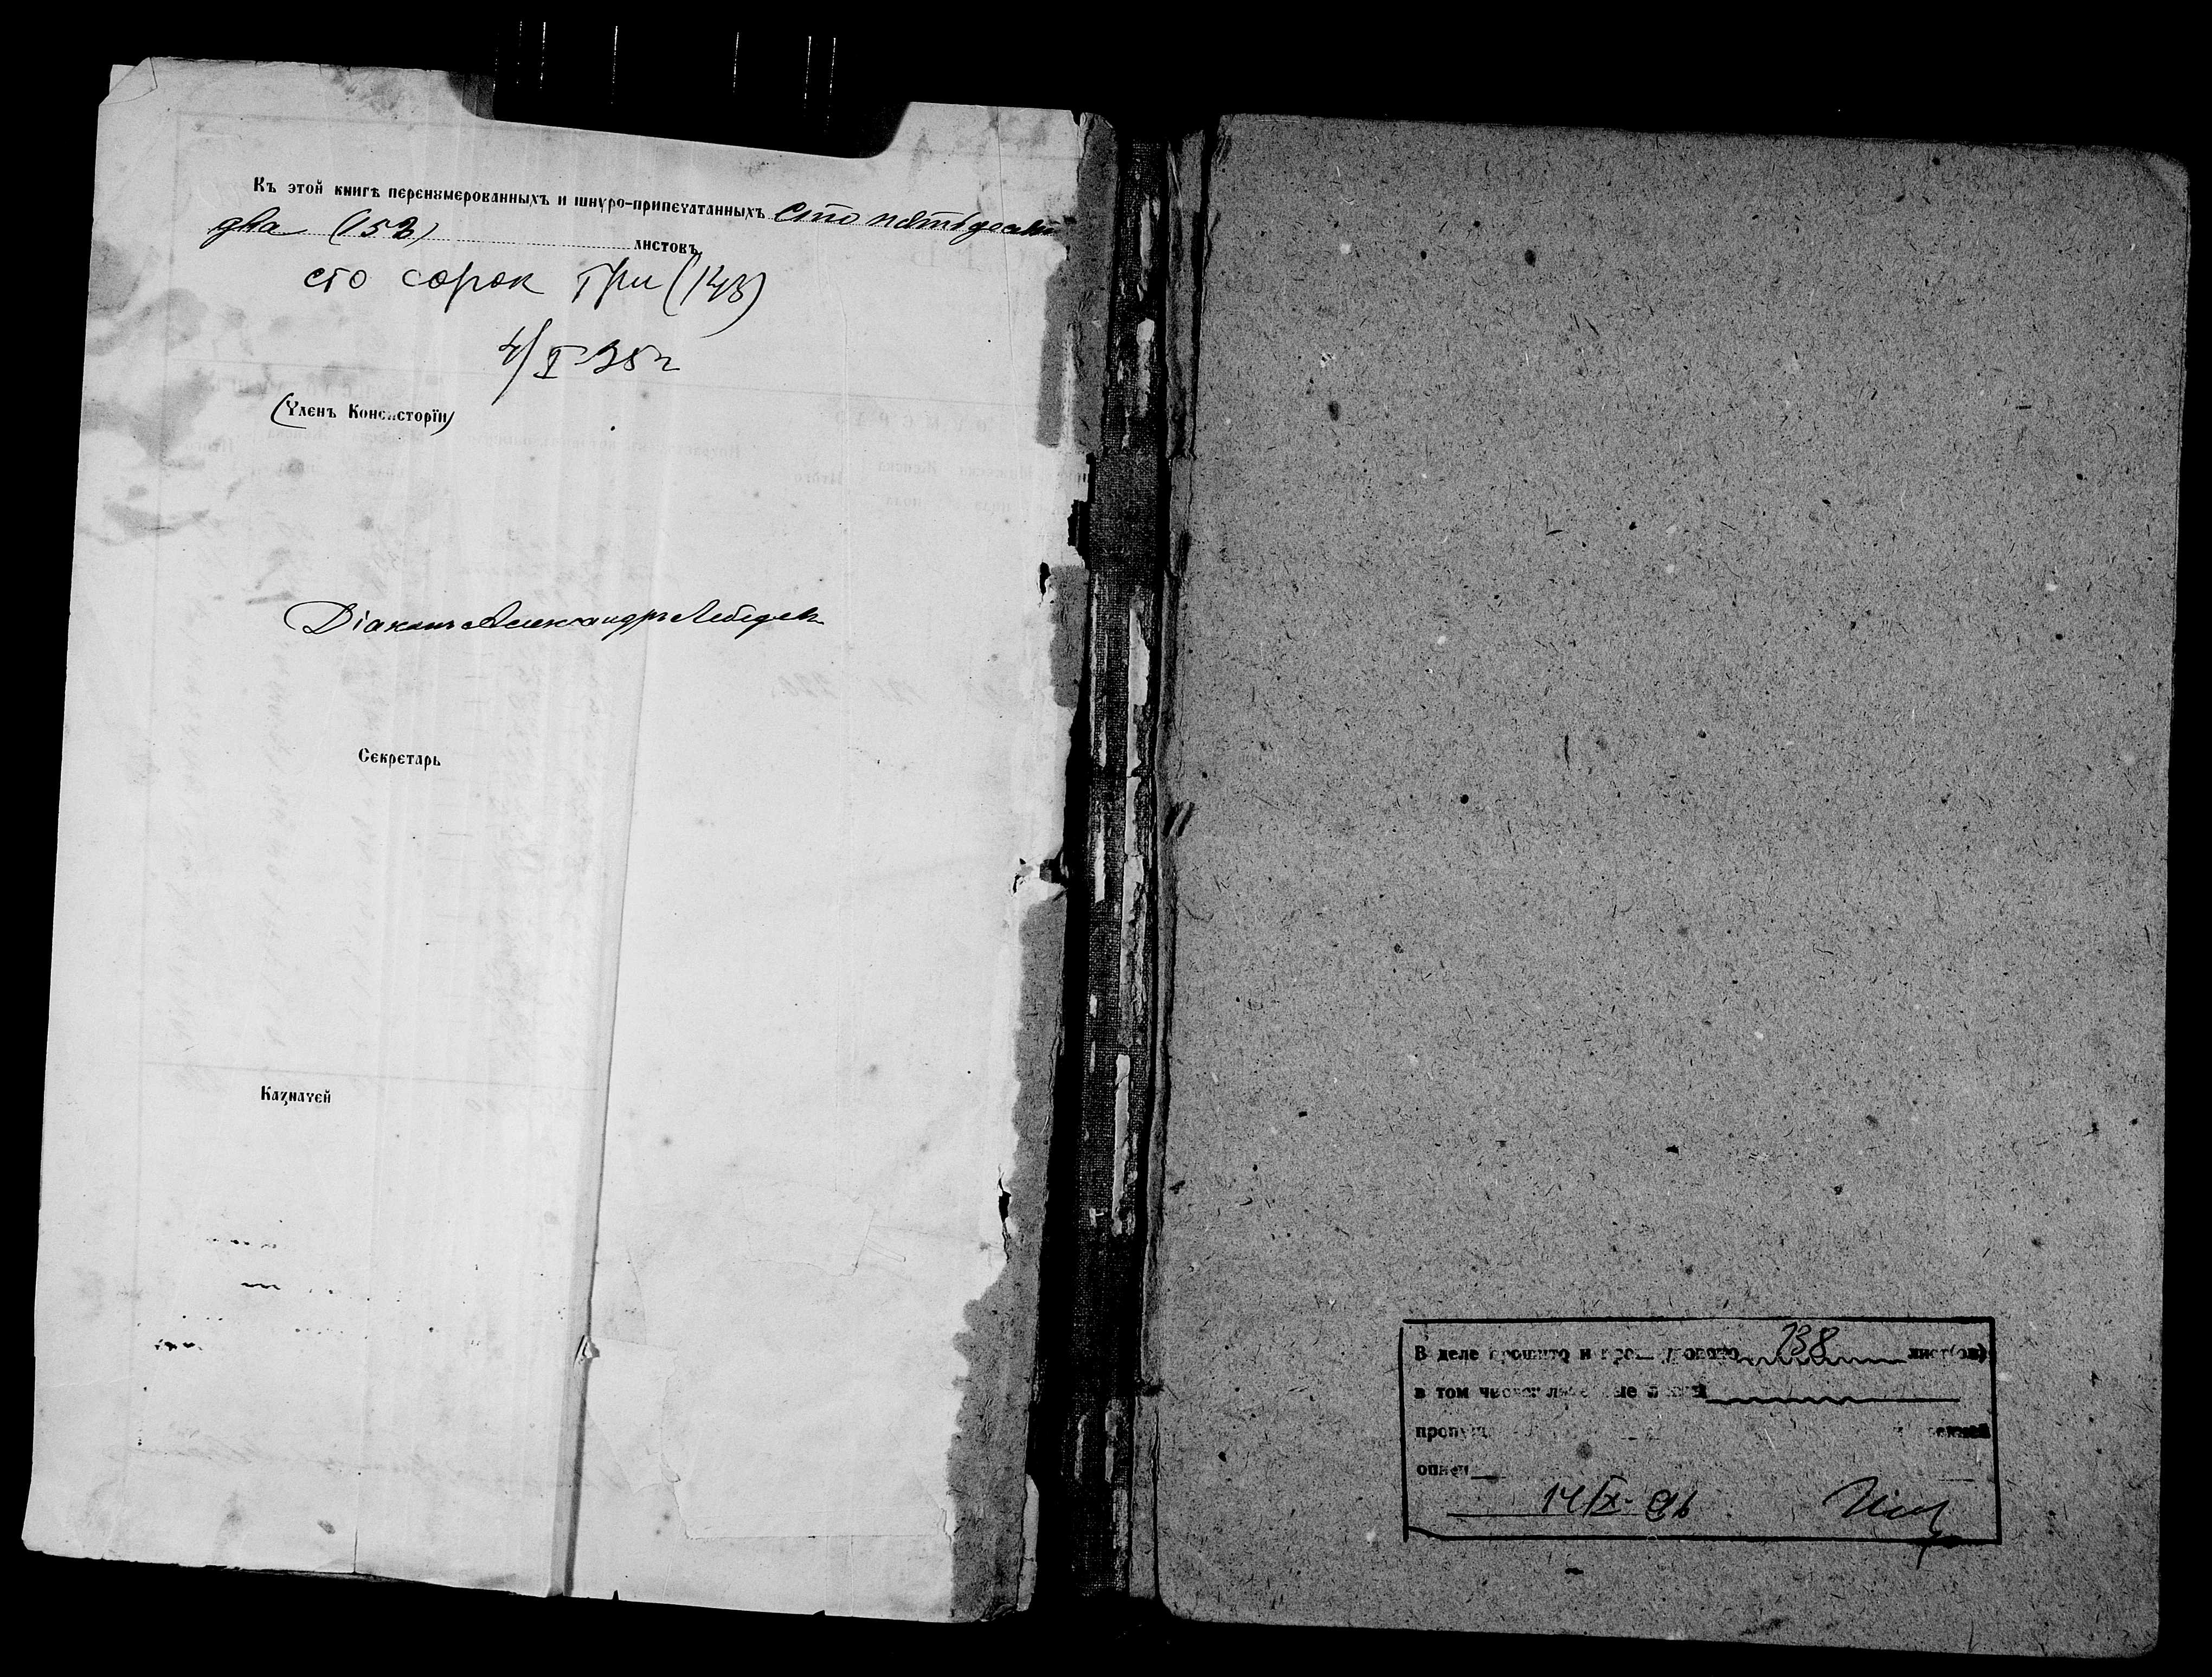 Къ этой книгѣ перенумерованныхъ и шнуро-припечатанныхъ Сто пятьдесятъ
два (152) листовъ
сто сорок три (143)
4/X-35 г
(Членъ Консисторіи)
Діаконъ Александръ Лебедев
Секретарь
Казначей
В деле прошито и пронумеровано 138 лист(ов)
в том числе
описи
14/IX-96